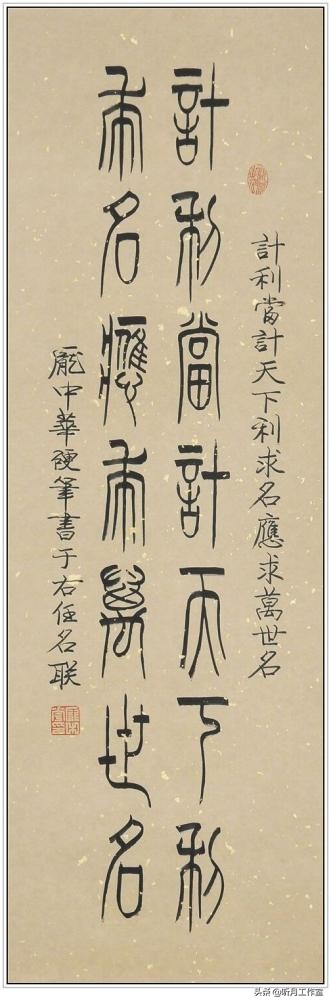 計利當計天下利求名應求萬世名
計利當計天下利
求名應求萬世名
龐中華硬筆書于右任名联
头条@听月工作室